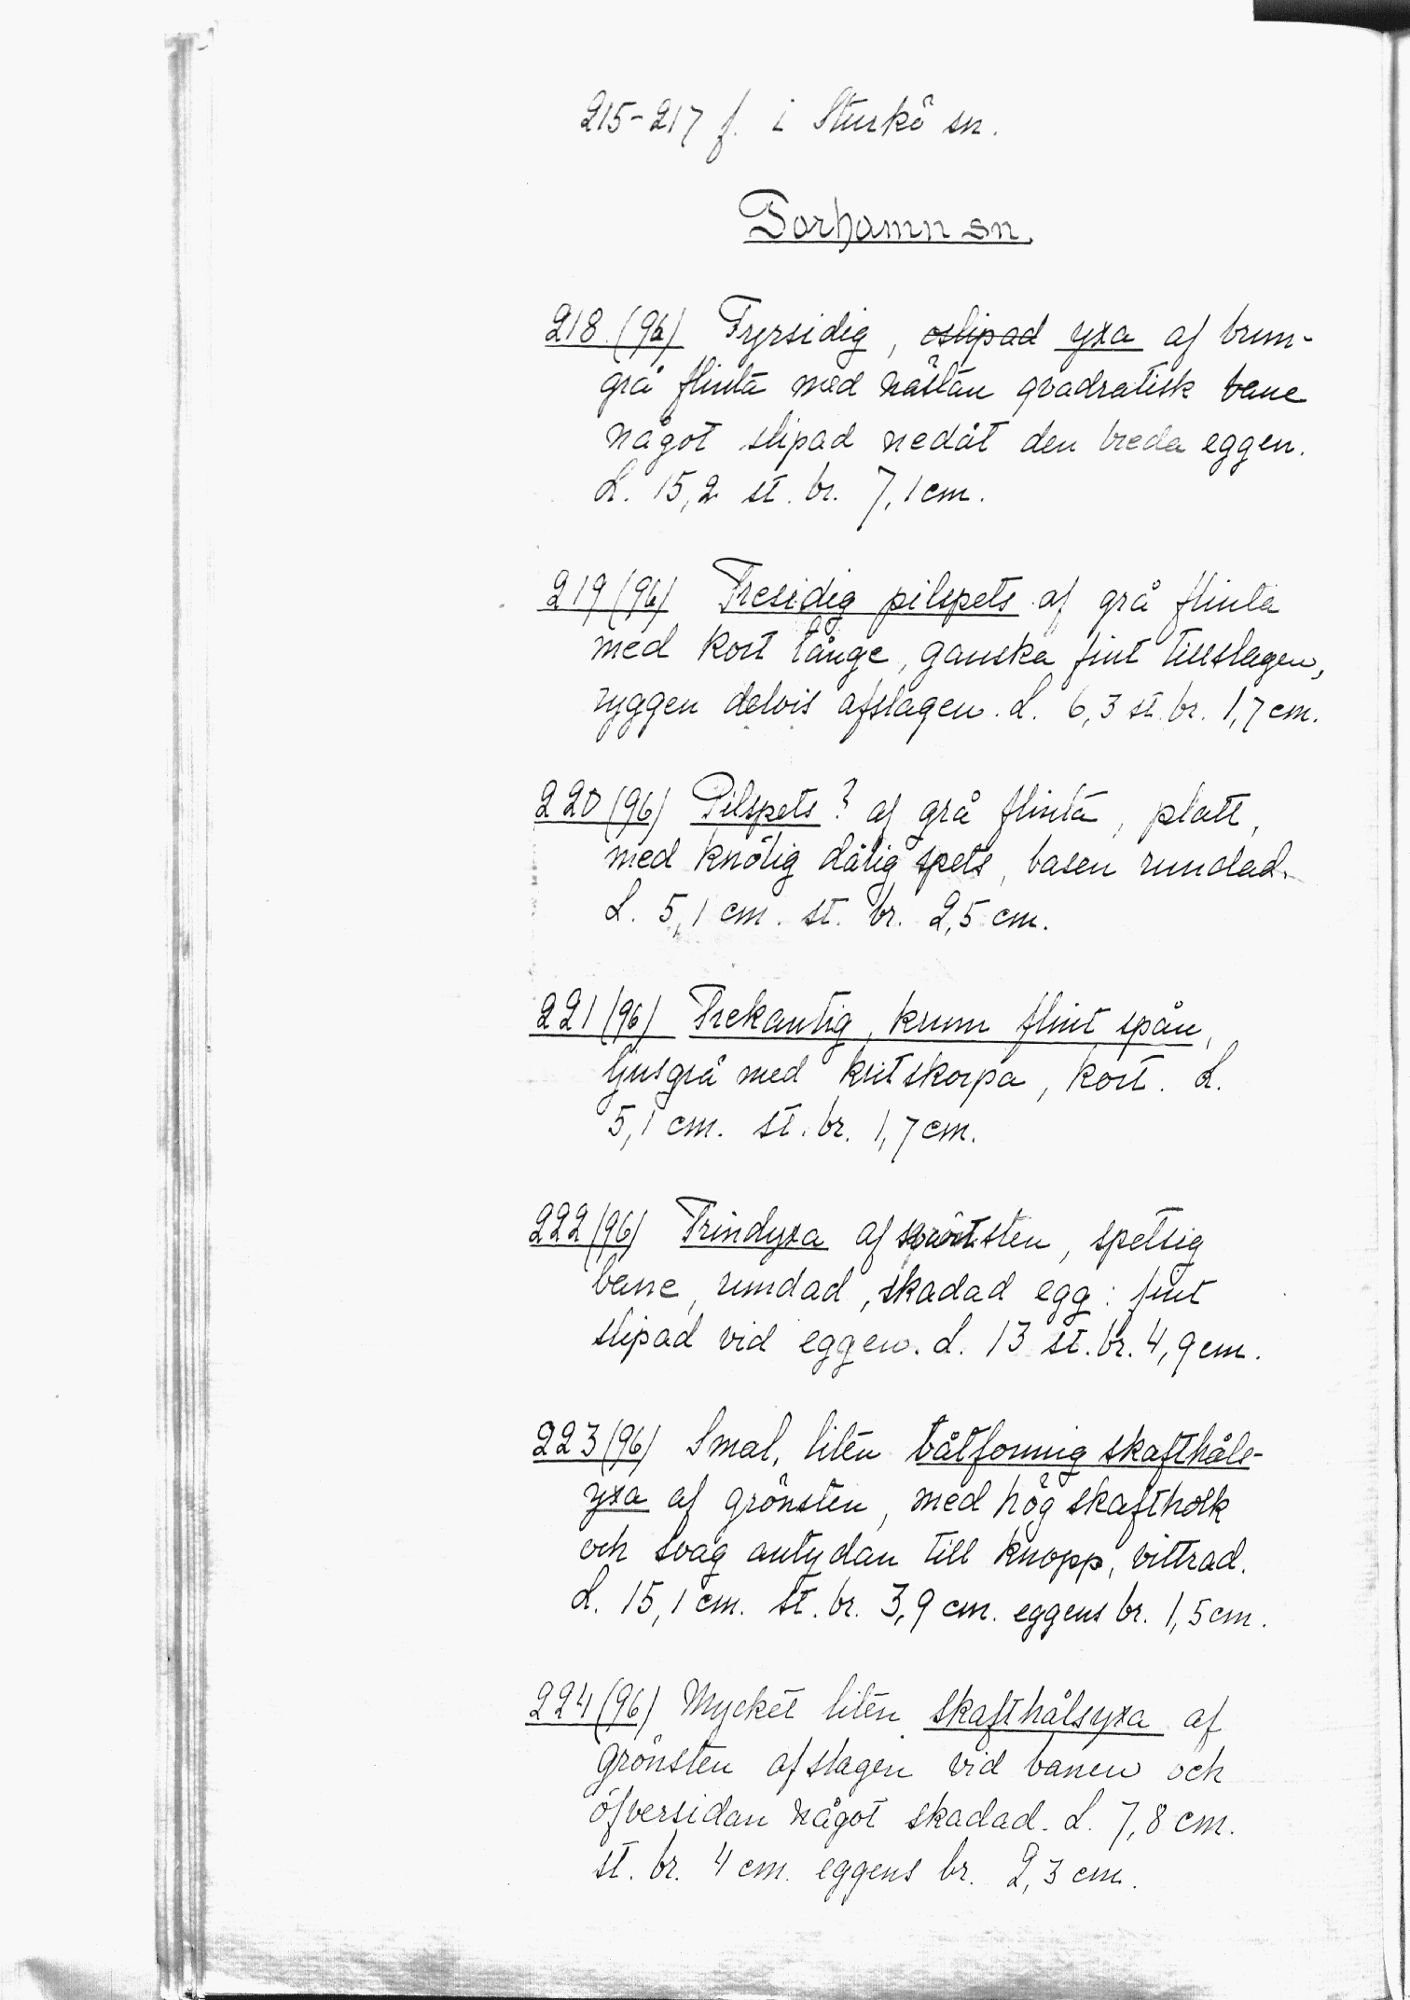 215-217 f. i Sturkö sn.
Torhamn sn.
218 (96) Fyrsidig, oslipad yxa af brun-
grå flinta med nästan qvadratisk bane
något slipad nedåt den breda eggen.
L. 15,2 st. br. 7,1 cm.
219 (96) Tresidig pilspets af grå flinta
med kort tånge, ganska fint tillslagen,
ryggen delvis afslagen. L. 6,3 st. br. 1,7 cm.
220 (96) Pilspets? af grå flinta, platt,
med knölig dålig spets, basen rundad.
L. 5,1 cm. st. br. 2,5 cm.
221 (96) Trekantig, krum flint spån,
ljusgrå med kritskorpa, kort. L.
5,1 cm. st. br. 1,7 cm.
222 (96) Trindyxa af svartsten, spetsig
bane, rundad, skadad egg: fint
slipad vid eggen. L. 13 st. br. 4,9 cm.
223 (96) Smal, liten båtformig skafthåls-
yxa af grönsten, med hög skaftholk
och svag antydan till knopp, vittrad.
L. 15,1 cm. st. br. 3,9 cm. eggens br. 1,5 cm.
224 (96) Mycket liten skafthålsyxa af
grönsten afslagen vid banen och
öfversidan något skadad. L. 7,8 cm.
st. br. 4 cm. eggens br. 2,3 cm.